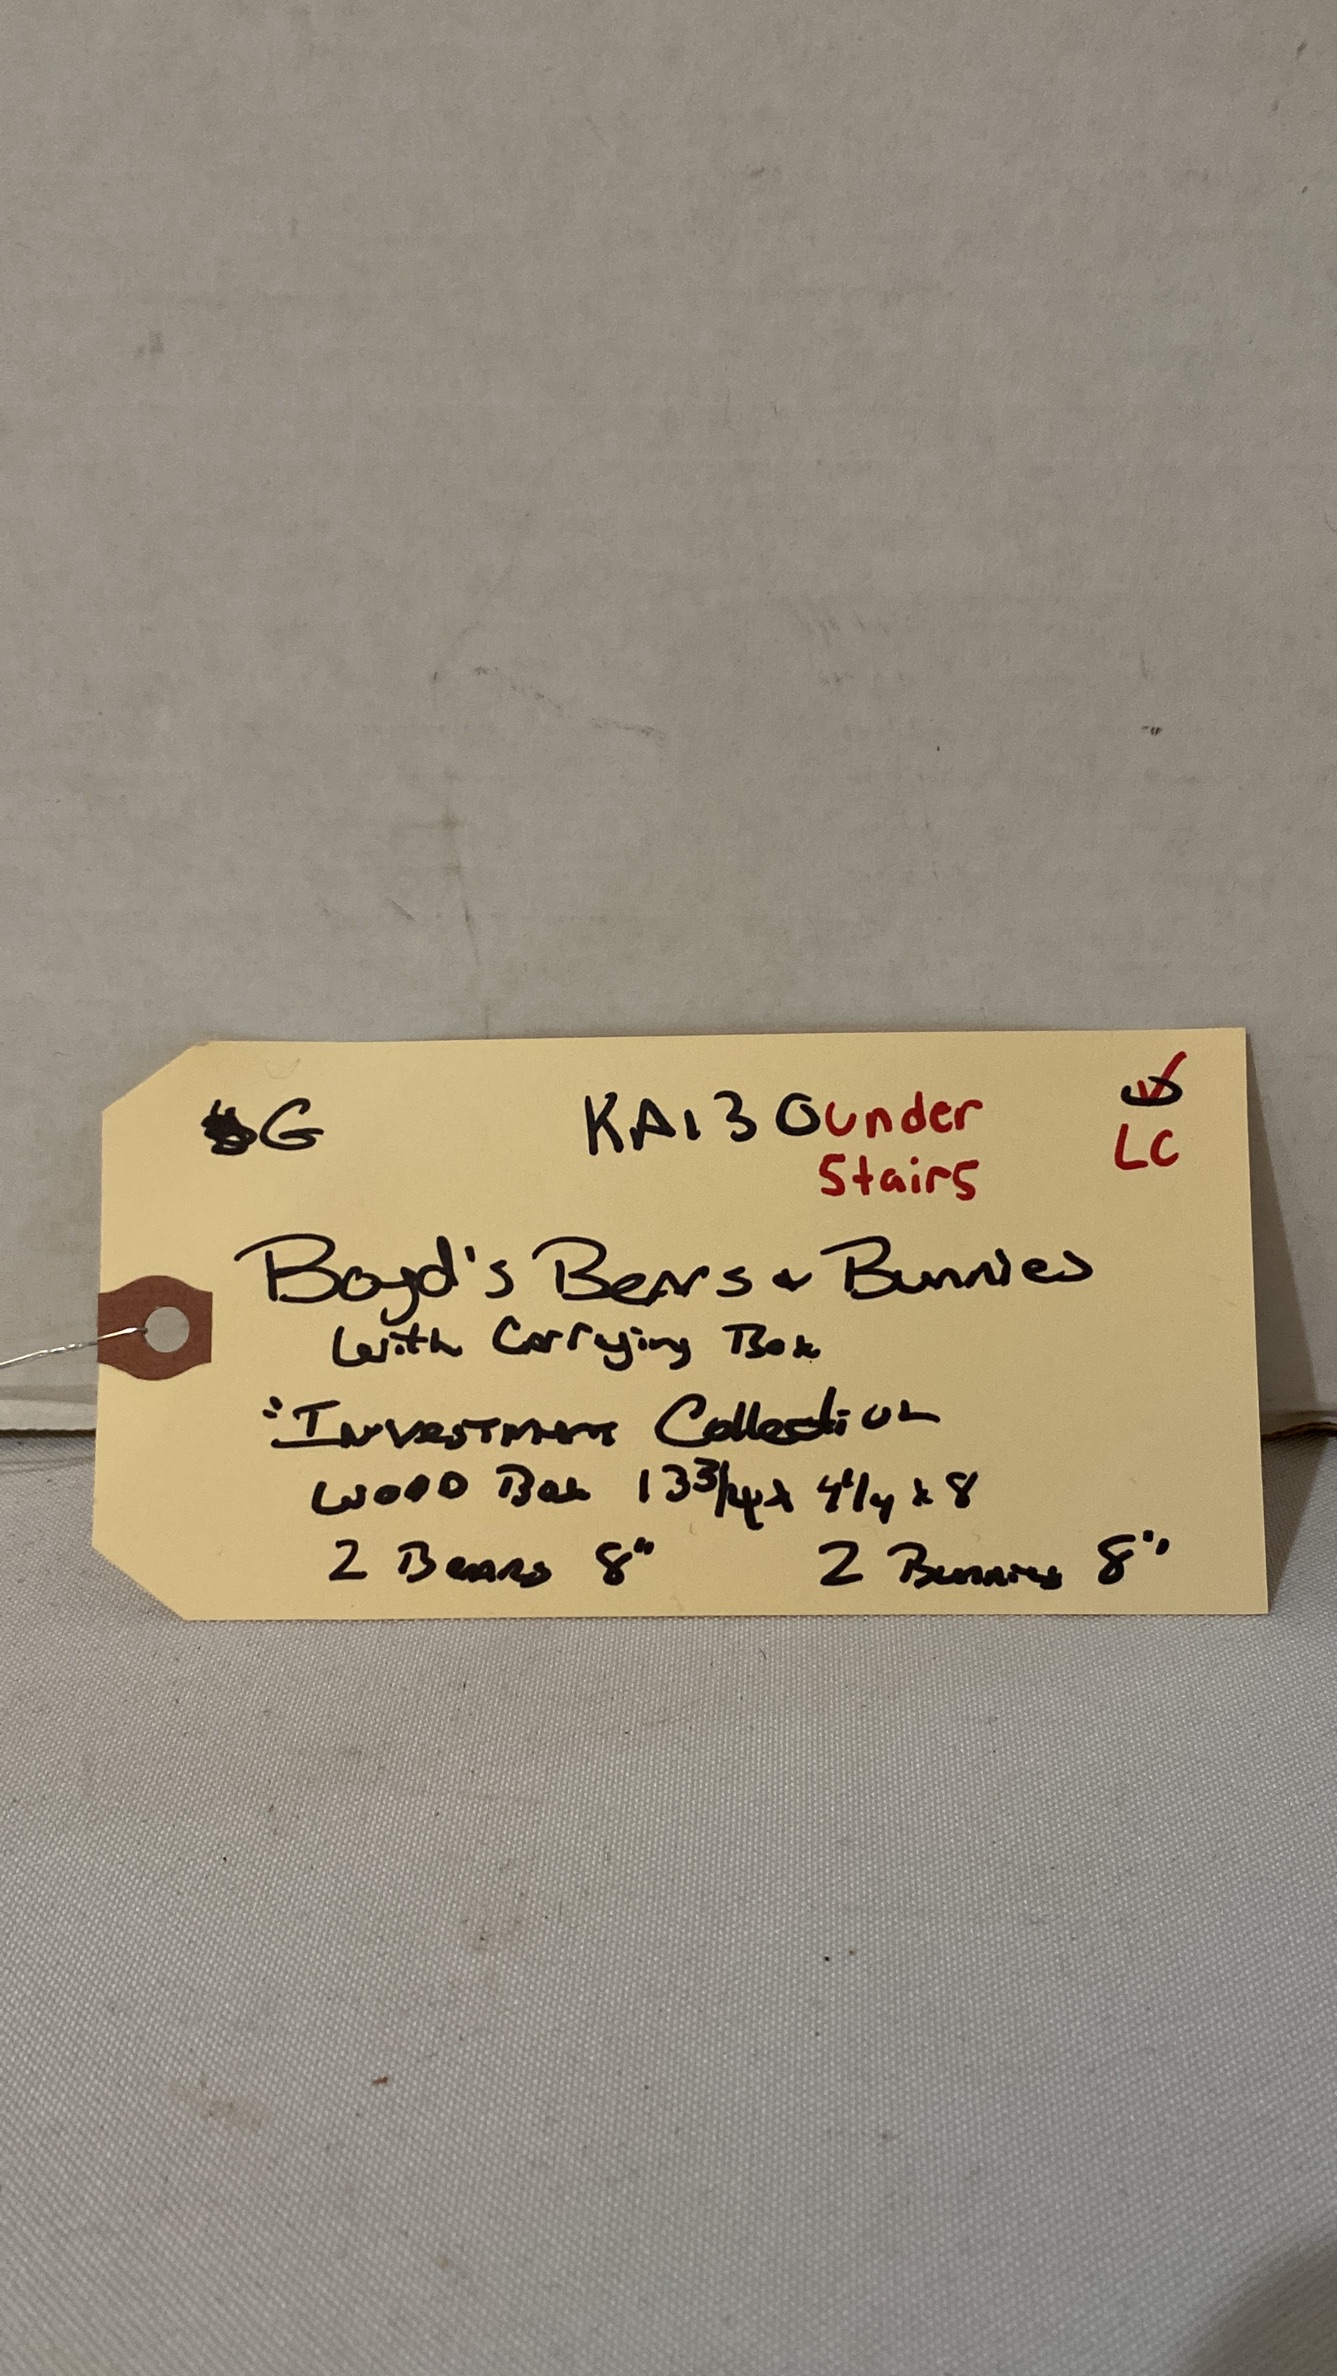 G KA130 under
Stairs
LC
Boyd's Bears & Bunnies
with Carrying Box
"Investment Collection
Wood Box 13 3/4 x 4 1/4 x 8
2 Bears 8" 2 Bunnies 8"